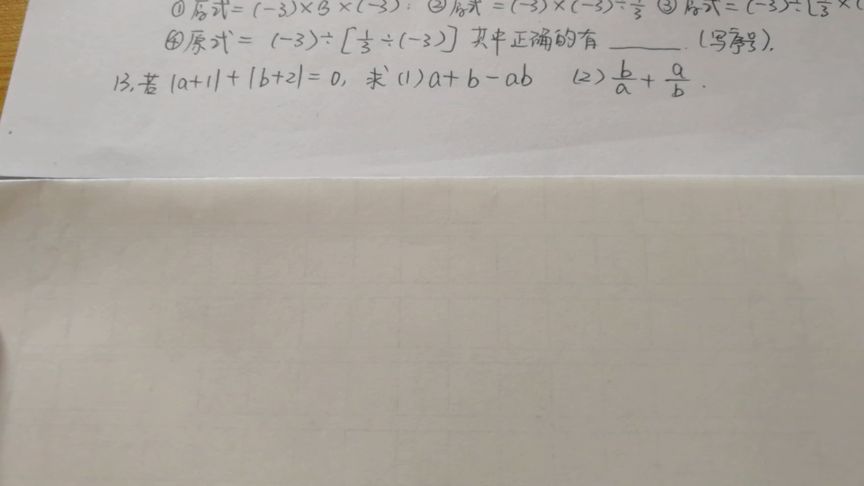 ①原式=(-3)×3×(-3); ②原式=(-3)×(-3)÷1/3 ③原式=(-3)÷[1/3×(
④原式= (-3)÷[1/3÷(-3)] 其中正确的有 ______ (写序号).
13.若|a+1|+|b+2|=0, 求(1)a+b-ab (2) b/a + a/b .